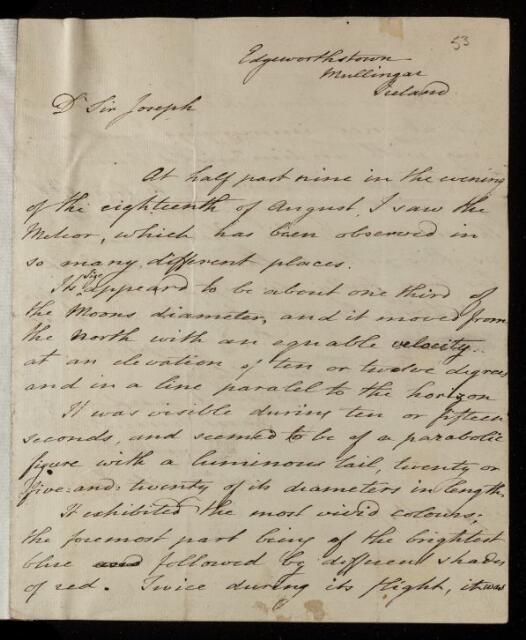 53
Edgeworthstown
Mullingar
Ireland
Dr Sir Joseph
At half past nine in the evening
of the eighteenth of August, I saw the
Meteor, which has been observed in
so many different places.
Its size appeared to be about one third of
the Moons diameter, and it moved from
the North with an equable velocity..
at an elevation of ten or twelve degrees
and in a line paralel to the horizon
It was visible during ten or fifteen
seconds, and seemed to be of a parabolic
figure with a luminous tail, twenty or
five-and-twenty of its diameters in length.
It exhibited the most vivid colours;
the foremost part being of the brightest
blue and followed by different shades
of red. Twice during its flight, it was